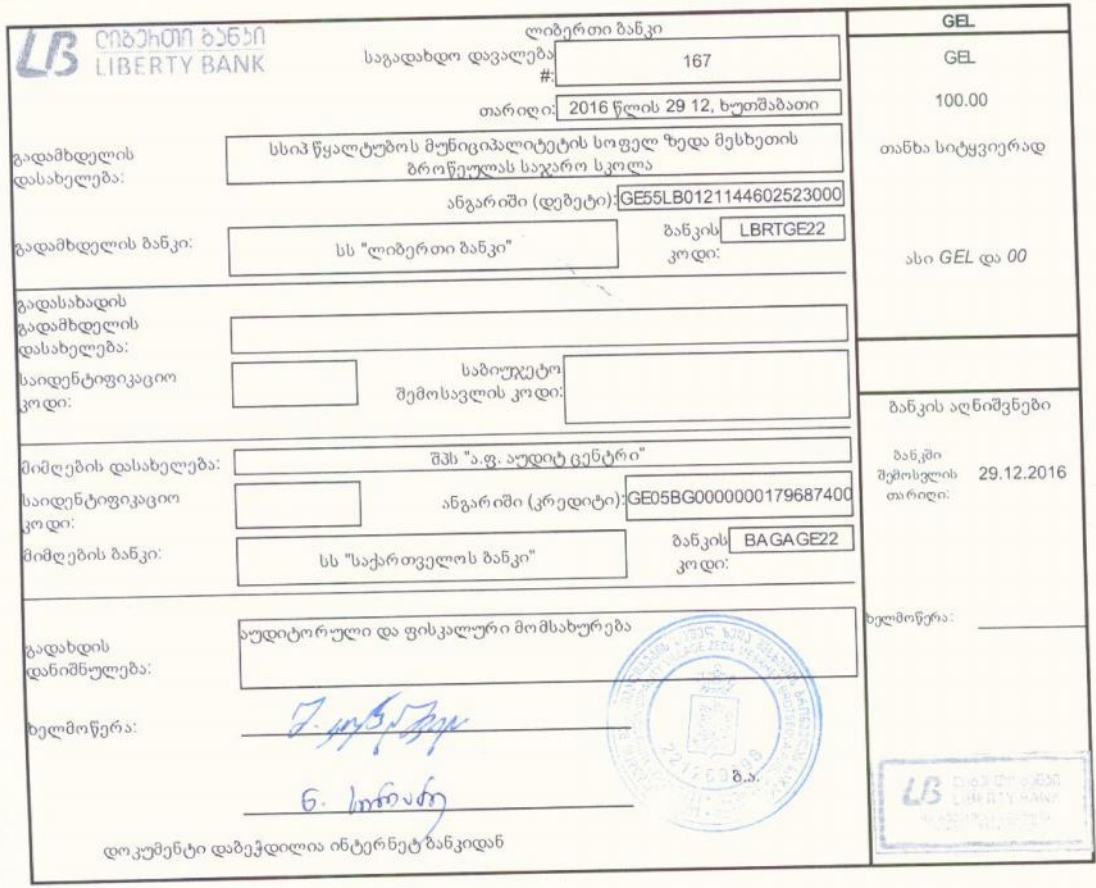 ლიბერთი ბანკი
LIBERTY BANK
ლიბერთი ბანკი
საგადახდო დავალება #: 167
თარიღი: 2016 წლის 29 12, ხუთშაბათი
გადამხდელის დასახელება:
სსიპ წყალტუბოს მუნიციპალიტეტის სოფელ ზედა მესხეთის
ბროწეულას საჯარო სკოლა
ანგარიში (დებეტი): GE55LB0121144602523000
გადამხდელის ბანკი: სს "ლიბერთი ბანკი" ბანკის კოდი: LBRTGE22
გადასახადის
გადამხდელის
დასახელება:
საიდენტიფიკაციო კოდი:
საბიუჯეტო
შემოსავლის კოდი:
მიმღების დასახელება: შპს "ა.ფ. აუდიტ ცენტრი"
საიდენტიფიკაციო კოდი:
ანგარიში (კრედიტი): GE05BG0000000179687400
მიმღების ბანკი: სს "საქართველოს ბანკი" ბანკის კოდი: BAGAGE22
გადახდის
დანიშნულება:
აუდიტორული და ფისკალური მომსახურება
ხელმოწერა:
ბ.ა.
დოკუმენტი დაბეჭდილია ინტერნეტ ბანკიდან
GEL
GEL
100.00
თანხა სიტყვიერად
ასი GEL და 00
ბანკის აღნიშვნები
ბანკში
შემოსვლის
თარიღი:
29.12.2016
ხელმოწერა:
LB LIBERTY BANK